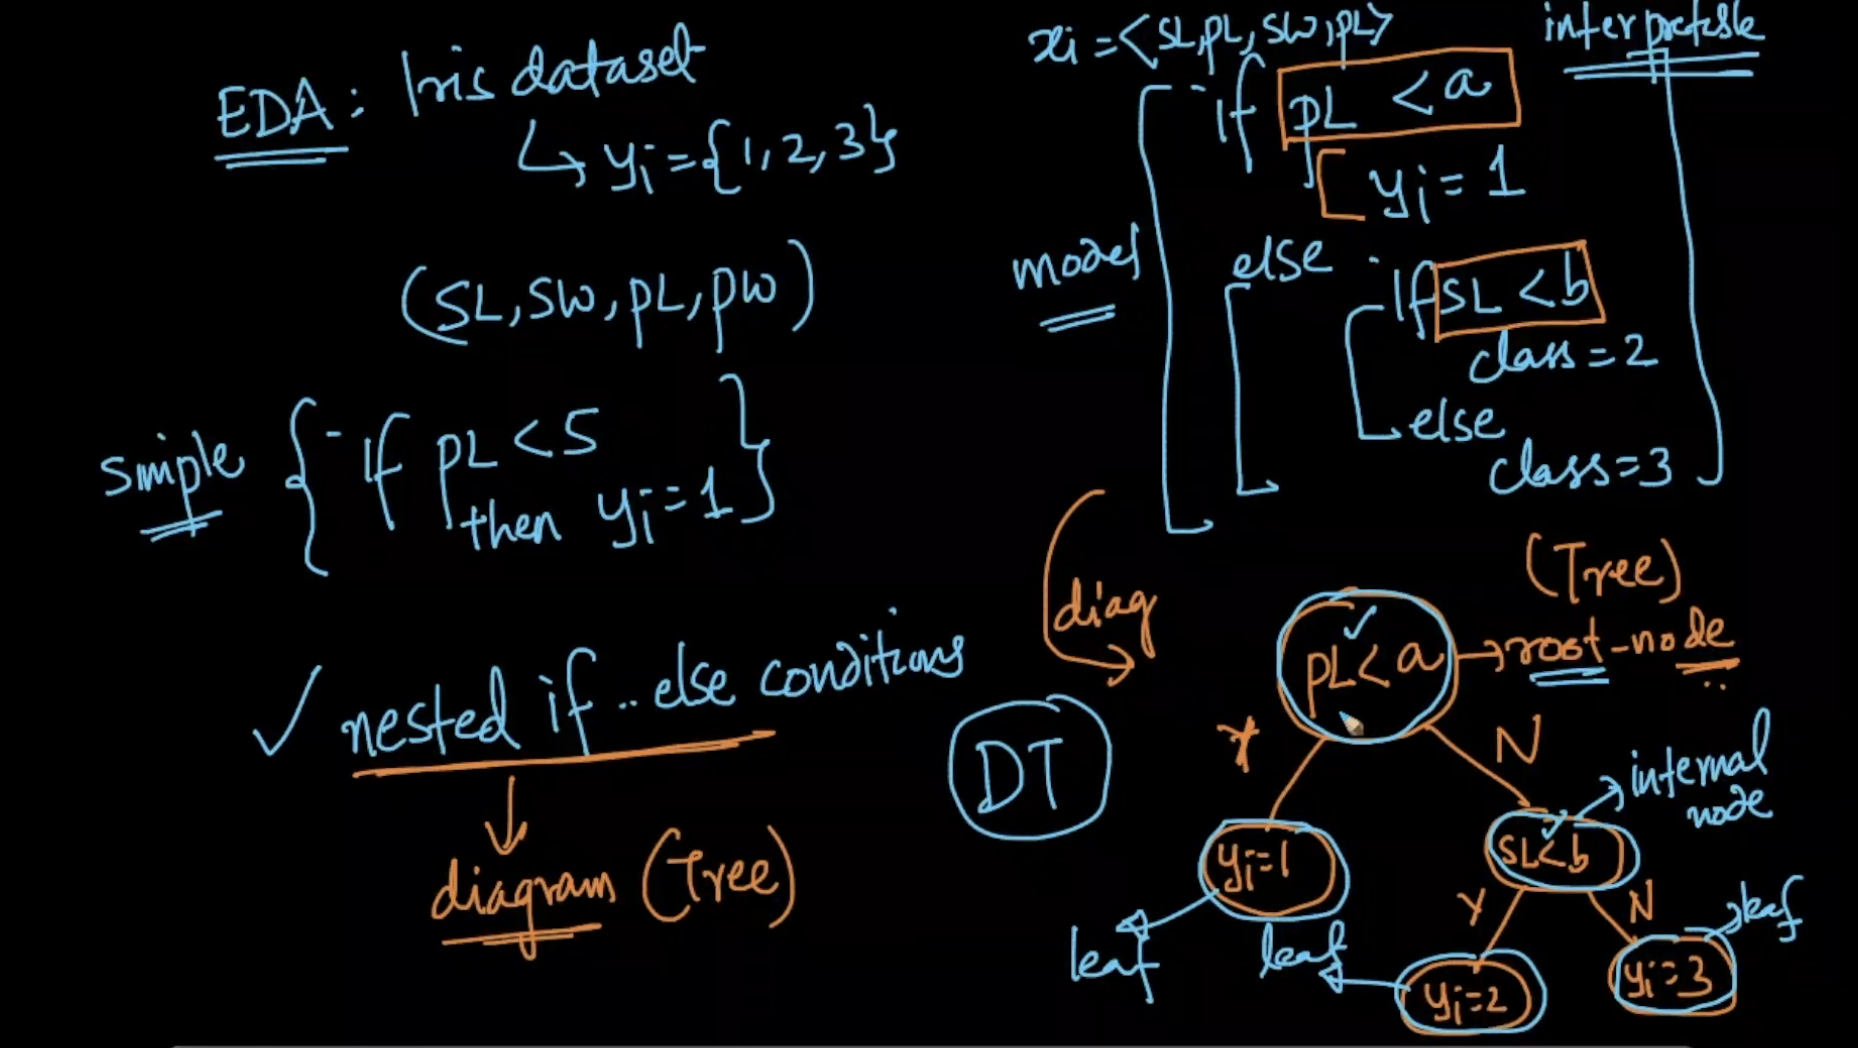 EDA: Iris dataset
↳ yi = {1, 2, 3}
(SL, SW, PL, PW)
simple { - If PL < 5
then yi = 1 }
✓ nested if .. else conditions
↓
diagram (Tree)
xi = <SL, PL, SW, PL>
interpretable
model
- if PL < a
yi = 1
else - If SL < b
class = 2
else
class = 3
diag
(Tree)
PL < a → root-node
DT
Y
N
internal
node
yi=1
SL<b
Y
N
leaf
leaf
leaf
yi=2
yi=3